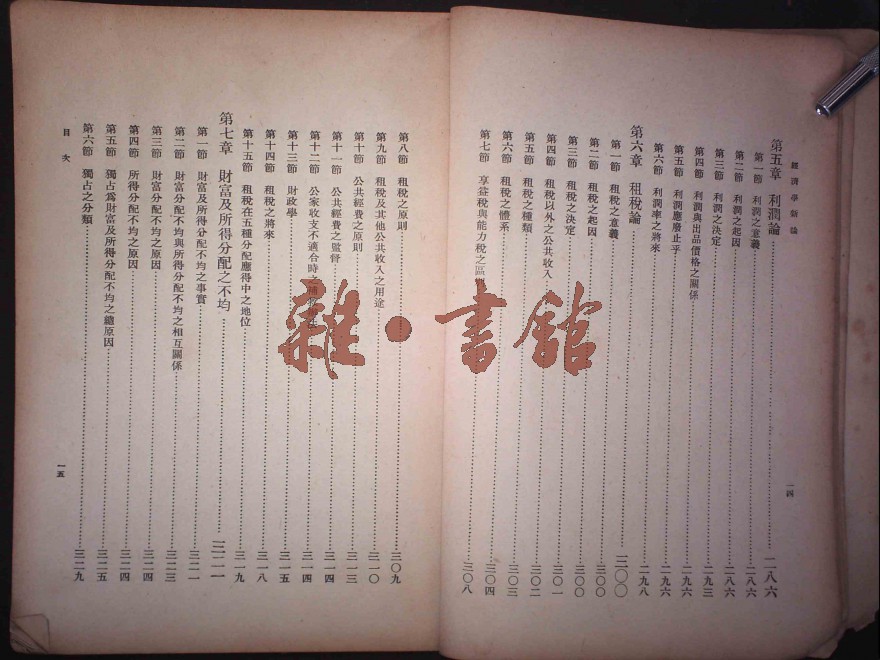 經濟學新論
第五章 利潤論 二八六
第一節 利潤之意義 二八六
第二節 利潤之起因 二八六
第三節 利潤之決定 二九三
第四節 利潤與出品價格之關係 二九六
第五節 利潤應廢止乎 二九六
第六節 利潤率之將來 二九八
第六章 租稅論 三〇〇
第一節 租稅之意義 三〇〇
第二節 租稅之起因 三〇〇
第三節 租稅之決定 三〇〇
第四節 租稅以外之公共收入 三〇一
第五節 租稅之種類 三〇二
第六節 租稅之體系 三〇三
第七節 享益稅與能力稅之區 三〇四
三〇八
一四
第八節 租稅之原則 三〇九
第九節 租稅及其他公共收入之用途 三一〇
第十節 公共經費之原則 三一三
第十一節 公共經費之監督 三一四
第十二節 公家收支不適合時之 三一四
第十三節 財政學 三一五
第十四節 租稅之將來 三一八
第十五節 租稅在五種分配應得中之地位 三一九
第七章 財富及所得分配之不均 三二一
第一節 財富及所得分配不均之事實 三二一
第二節 財富分配不均與所得分配不均之相互關係 三二三
第三節 財富分配不均之原因 三二四
第四節 所得分配不均之原因 三二四
第五節 獨占爲財富及所得分配不均之總原因 三二五
第六節 獨占之分類 三二九
目次
一五
雜·書館